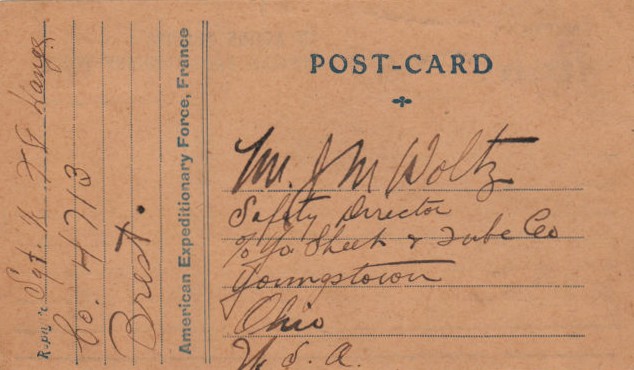 POST-CARD
Mr. J M Woltz
Safety Director
% Yo Sheet & Tube Co
Youngstown
Ohio
U. S. A.
American Expeditionary Force, France
Sgt.
Co. 4713
Brest.